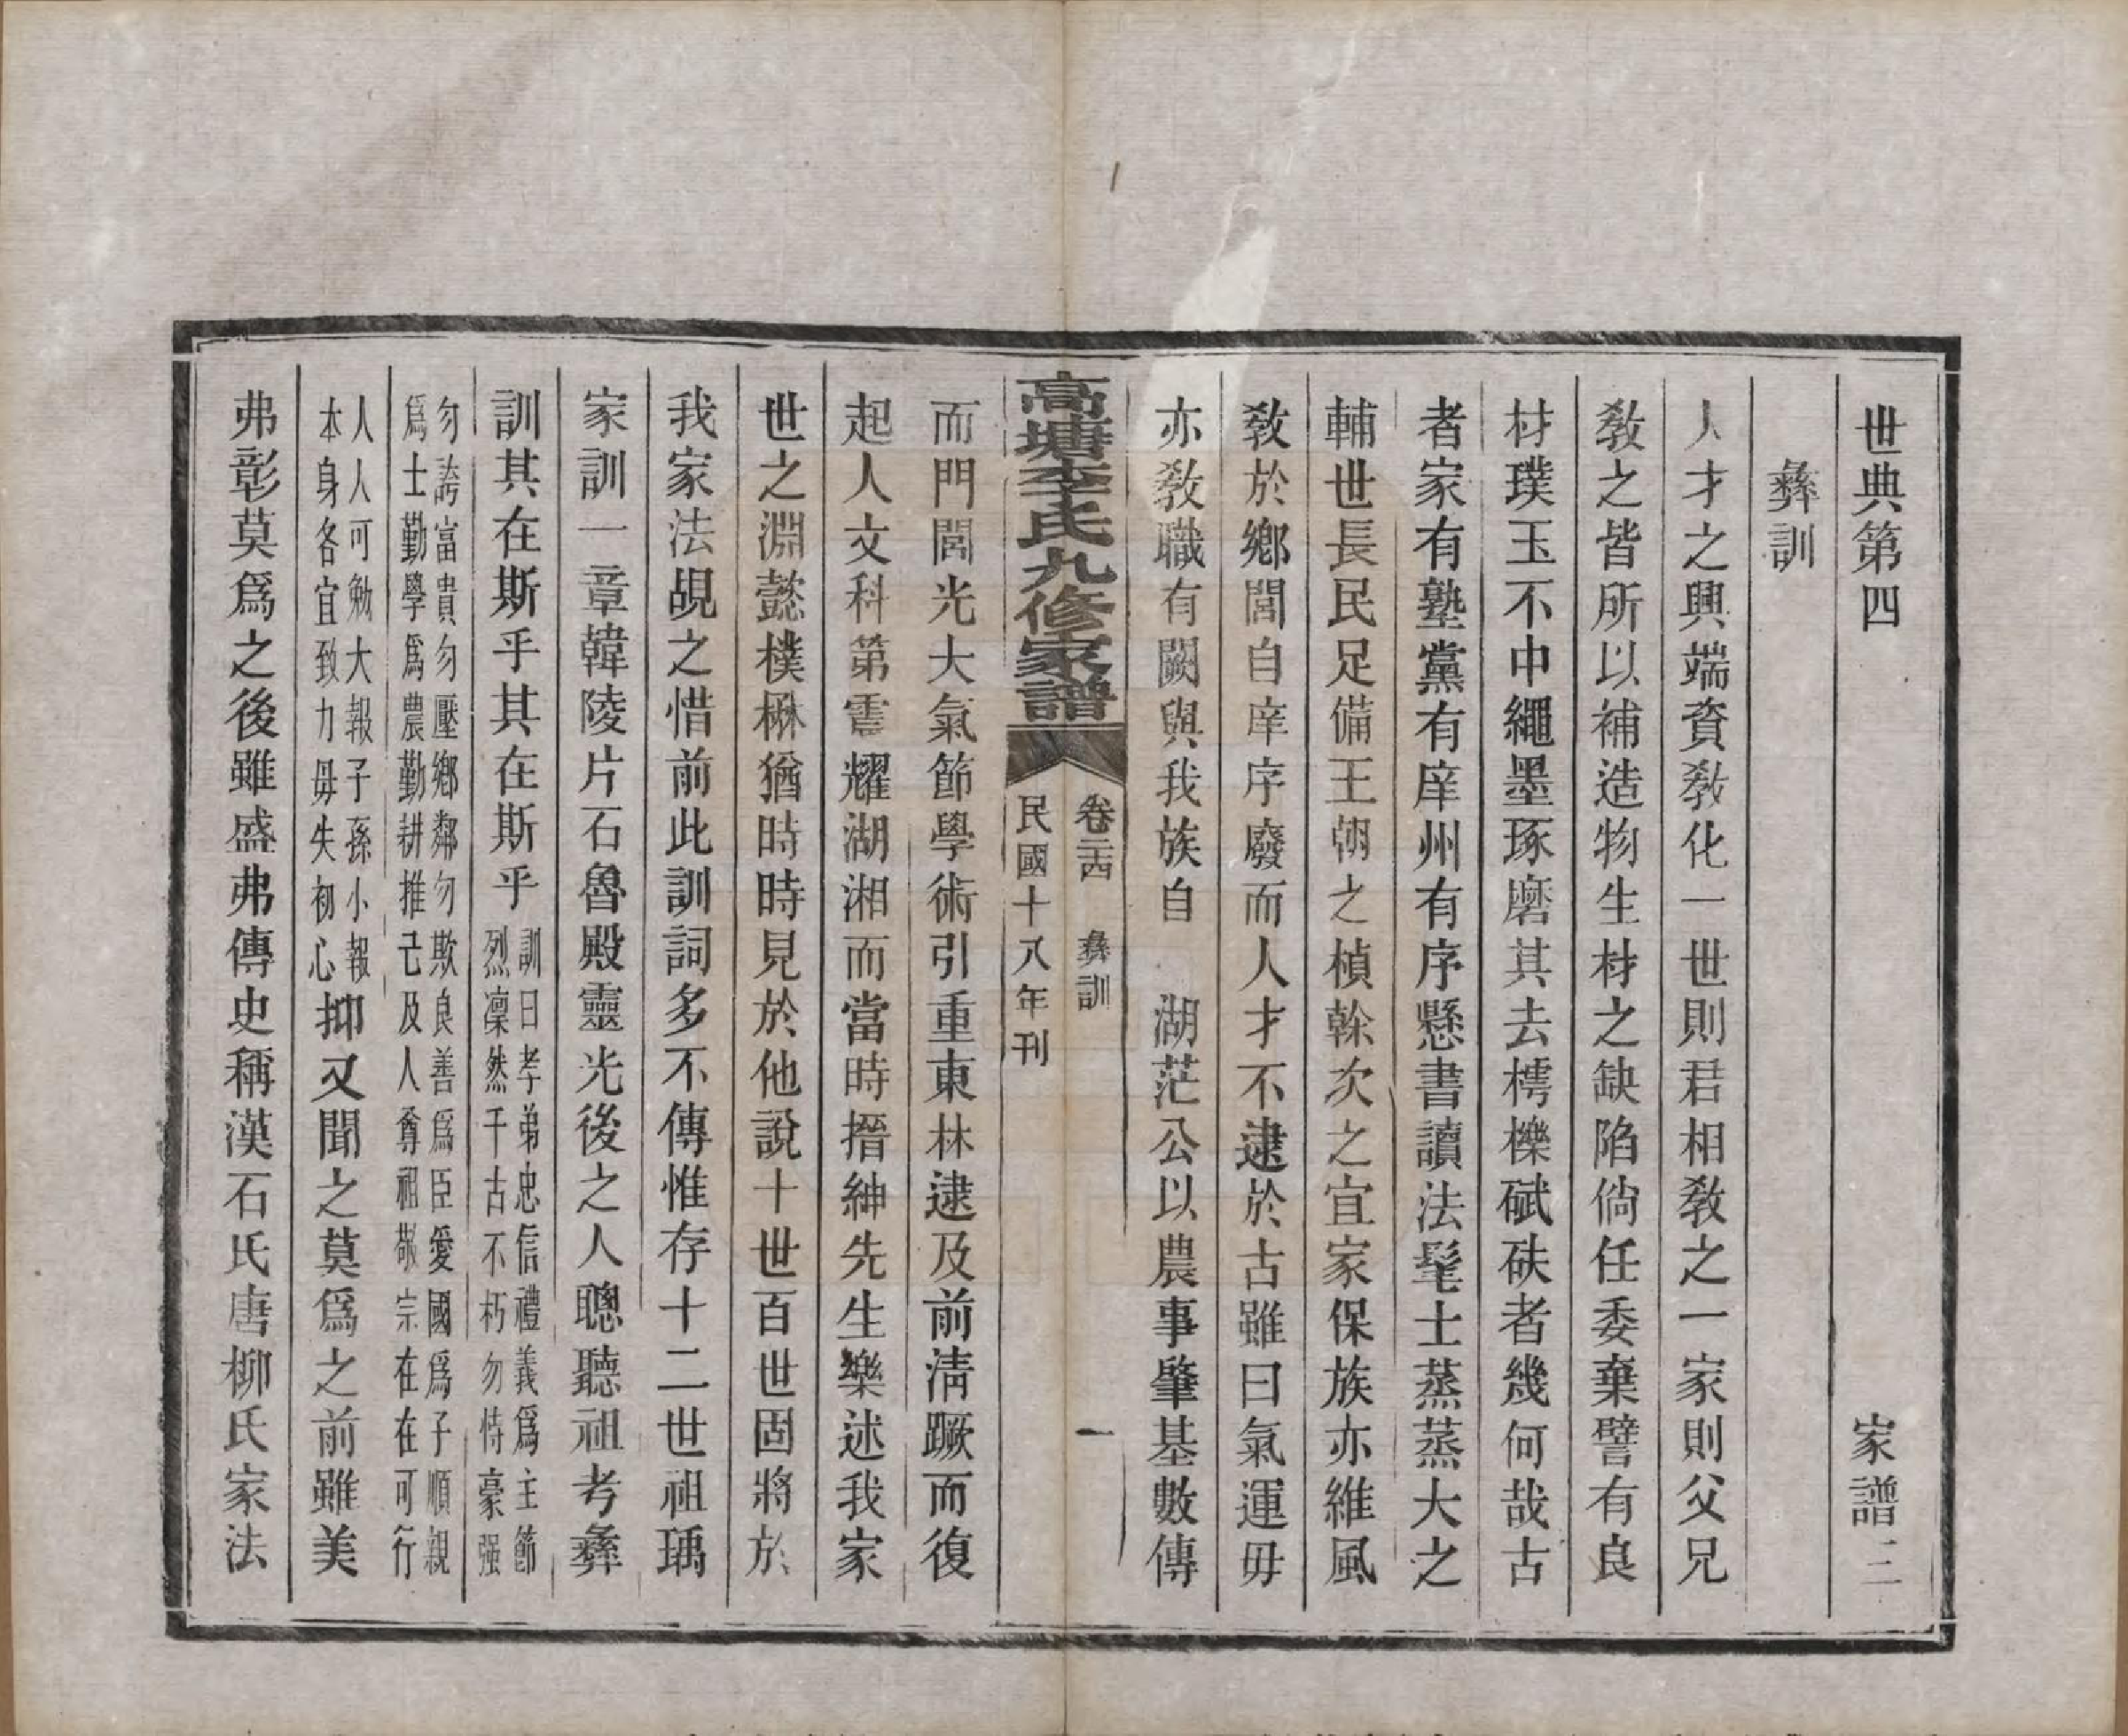 世典第四　家譜二
彝訓
人才之興端資敎化一世則君相敎之一家則父兄
敎之皆所以補造物生材之缺陷倘任委棄譬有良
材璞玉不中繩墨琢磨其去樗櫟碔砆者幾何哉古
者家有塾黨有庠州有序懸書讀法髦士蒸蒸大之
輔世長民足備王朝之楨榦次之宜家保族亦維風
敎於鄉閭自庠序廢而人才不逮於古雖曰氣運毋
亦敎職有闕與我族自　湖茫公以農事肇基數傳
高塘李氏九修家譜
卷二四　彝訓　一
民國十八年刊
而門閭光大氣節學術引重東林逮及前淸蹶而復
起人文科第震耀湖湘而當時搢紳先生樂述我家
世之淵懿樸楙猶時時見於他說十世百世固將於
我家法覘之惜前此訓詞多不傳惟存十二世祖瑀
家訓一章韓陵片石魯殿靈光後之人聰聽祖考彝
訓其在斯乎其在斯乎
訓曰孝弟忠信禮義爲主節
烈凛然千古不朽勿恃豪强
勿誇富貴勿壓鄉鄰勿欺良善爲臣愛國爲子順親
爲士勤學爲農勤耕推己及人尊祖敬宗在在可行
人人可勉大報子孫小報
本身各宜致力毋失初心
抑又聞之莫爲之前雖美
弗彰莫爲之後雖盛弗傳史稱漢石氏唐柳氏家法